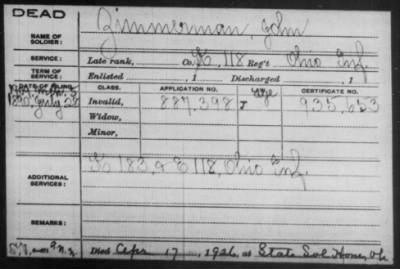 DEAD
Zimmerman, John
NAME OF SOLDIER:
SERVICE: Late rank, Co. K, 118 Reg't Ohio Inf.
TERM OF SERVICE: Enlisted , 1 Discharged , 1
DATE OF FILING. CLASS. APPLICATION NO. CERTIFICATE NO.
1890, July 28 Invalid, 887,398 935,653
Widow,
Minor,
ADDITIONAL SERVICES: K 183, & E 118, Ohio Inf.
REMARKS:
Died Apr 17, 1926, at State Sol Home, O.